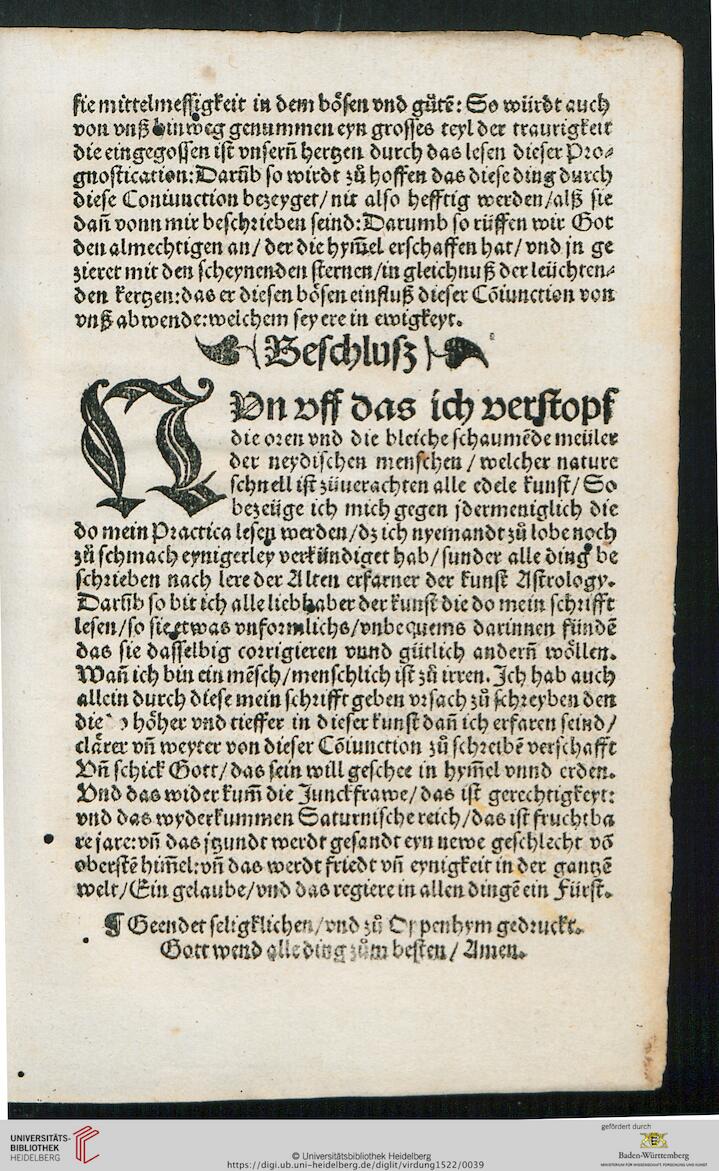 sie mittelmessigkeit in dem bösen vnd gütẽ: So würdt auch
von vnß hinweg genummen eyn grosses teyl der traurigkeit
die eingegossen ist vnsern̄ hertzen durch das lesen dieser Pro⸗
gnostication: Darũb so wirdt zů hoffen das diese ding durch
diese Coniunction bezeyget/ nit also hefftig werden/ alß sie
dañ vonn mir beschrieben seind: Darumb so rüffen wir Got
den almechtigen an/ der die hym̃el erschaffen hat/ vnd jn ge
zieret mit den scheynenden sternen/ in gleichnuß der leüchten⸗
den kertzen: das er diesen bösen einfluß dieser Cõiunction von
vnß abwende: welchem sey ere in ewigkeyt.
Beschlusz
NVn vff das ich verstopf
die oren vnd die bleiche schaumẽde meüler
der neydischen menschen / welcher nature
schnell ist zůuerachten alle edele kunst/ So
bezeüge ich mich gegen jdermeniglich die
do mein Practica lesen werden/ dz ich nyemandt zů lobe noch
zů schmach eynigerley verkündiget hab/ sunder alle ding be
schrieben nach lere der Alten erfarner der kunst Astrology.
Darũb so bit ich alle liebhaber der kunst die do mein schrifft
lesen/ so sie etwas vnformlichs/ vnbequems darinnen fündẽ
das sie dasselbig corrigieren vnnd gütlich andern̄ wöllen.
Wañ ich bin ein mẽsch/ menschlich ist zů irren. Ich hab auch
allein durch diese mein schrifft geben vrsach zů schreyben den
die do höher vnd tieffer in dieser kunst dañ ich erfaren seind/
clärer vñ weyter von dieser Cõiunction zů schreibẽ verschafft
Vñ schick Gott/ das sein will geschee in hym̃el vnnd erden.
Vnd das wider kum̃ die Junckfrawe/ das ist gerechtigkeyt:
vnd das wyderkummen Saturnische reich/ das ist fruchtba
re jare: vñ das jtzundt werdt gesandt eyn newe geschlecht võ
oberstẽ him̃el: vñ das werdt friedt vñ eynigkeit in der gantzẽ
welt/ Ein gelaube/ vnd das regiere in allen dingẽ ein Fürst.
¶ Geendet seligklichen/ vnd zů Oppenhym gedruckt.
Gott wend alle ding zům besten/ Amen.
UNIVERSITÄTS-
BIBLIOTHEK
HEIDELBERG
© Universitätsbibliothek Heidelberg
https://digi.ub.uni-heidelberg.de/diglit/virdung1522/0039
gefördert durch
Baden-Württemberg
MINISTERIUM FÜR WISSENSCHAFT, FORSCHUNG UND KUNST